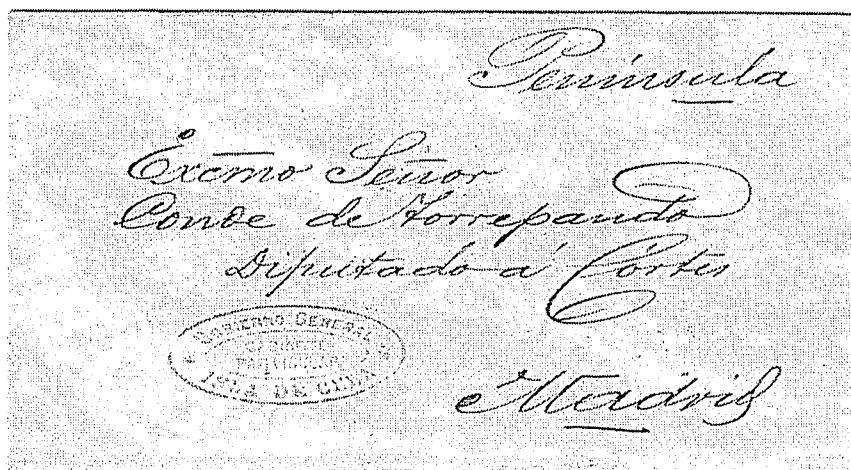 Península
Excmo Señor
Conde de Torrepando
Diputado á Cortes
GOBIERNO GENERAL
GABINETE
PARTICULAR
ISLA DE CUBA
Madrid